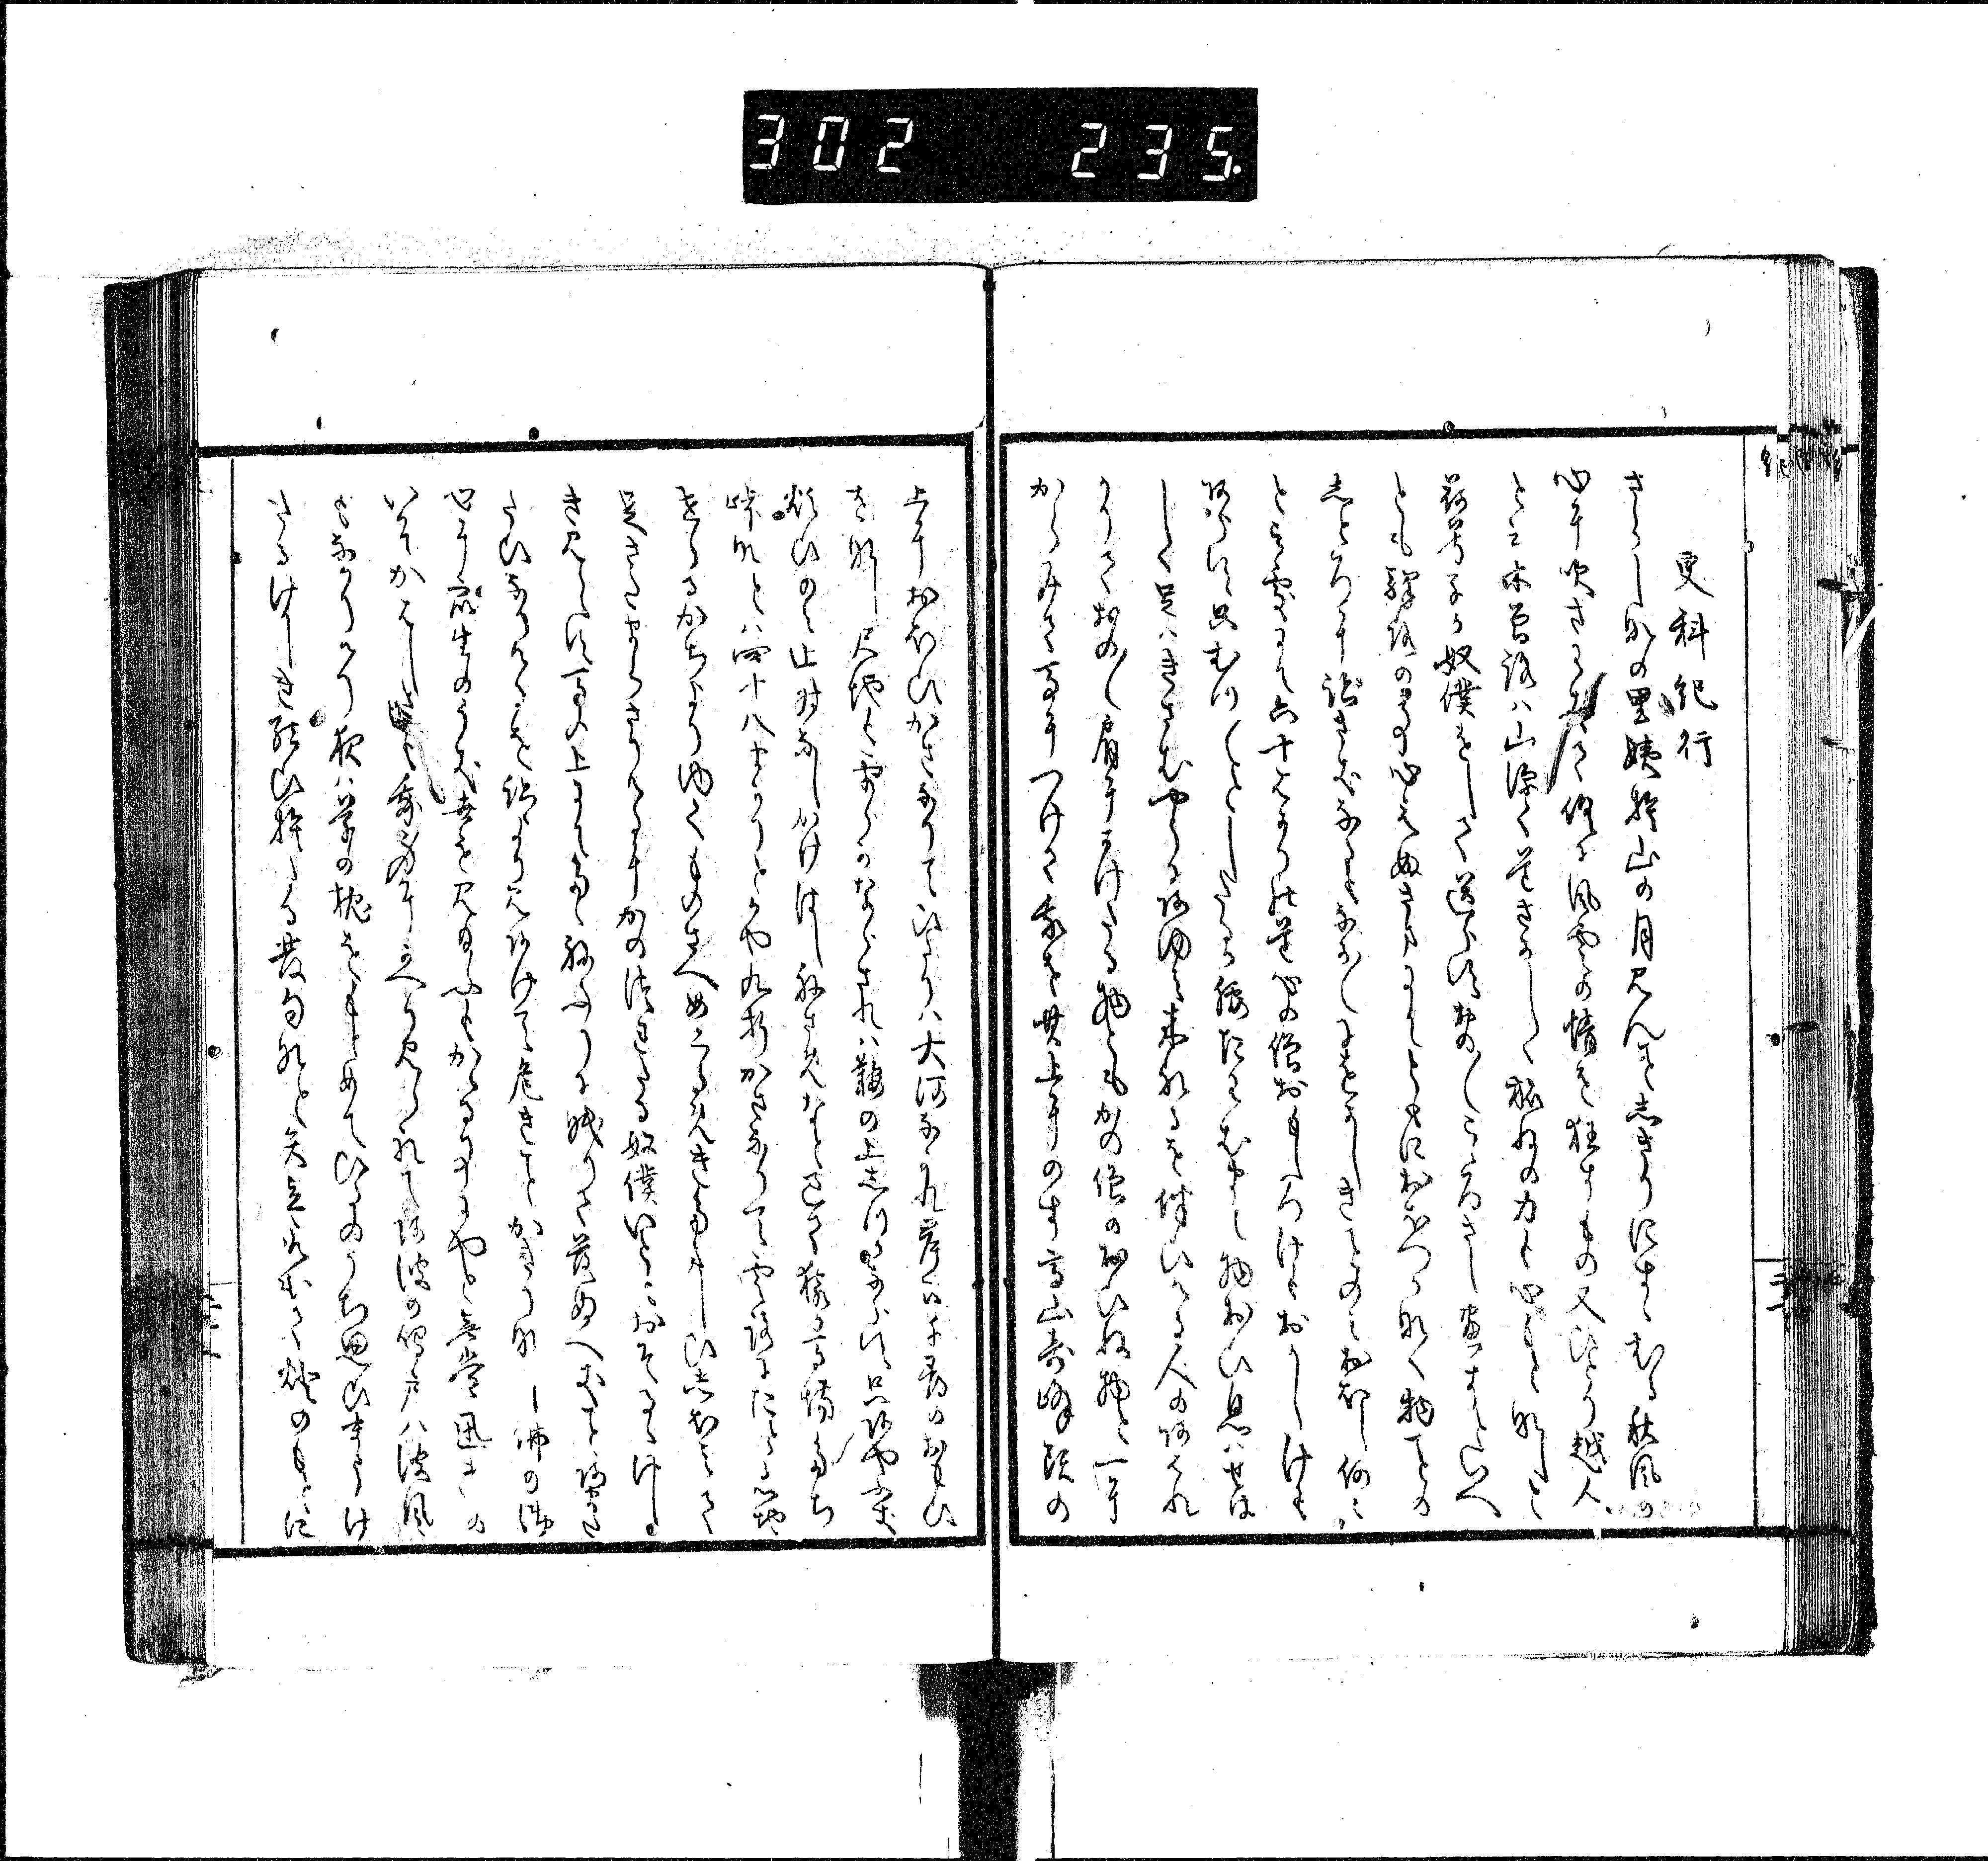 302 235.
更科紀行
さらしなの里姨捨山の月見んことしきりにすゝむる秋風の
心に吹さわきて倶に風雲の情を狂すもの又ひとり越人
と云木曽路ハ山深く道さかしく旅ねの力も心もとなしと
荷兮子か奴僕をして送らす各〱こゝろさし盡すといへ
とも驛旅の事心えぬさまにてともにおほつかなく物ことの
しとろに跡さきなるも中〱にをかしきことのみおほし何〻
と云處にて六十はかりの道心の僧おもしろけもおかしけも
あらす只むつ〱としたるか腰たわむまて物おひ息ハせは
しく足ハきさむやうにあゆみ来れるを伴ひける人のあはれ
かりておの〱肩にかけたる物ともかの僧のおひね物と一に
からみて馬につけて我を其上にのす高山奇峰頭の
上におほひかさなりてひたりハ大河なかれ岸下千尋のおもひ
をなし尺地もたいらかならされハ鞍の上しつかならす只あやうき
煩ひのみ止時なしかけはしねさめなと過て猿か馬場たち
峠なとハ四十八まかりとかや九折かさなりて雲路にたとる心地
せらるかちより行ものさへめくるめきたましひしほみて
足さたまらさりけるにかのつれたる奴僕いともおそるゝけし
き見えす馬の上にて只ねふりに眠りて落ぬへきことあまた
たひなりけるを跡より見あけて危きことかきりなし佛の御
心に衆生のうき世を見給ふもかゝる事にやと無常迅速の
いそかはしさも我身にかへり見られてあはの鳴戸ハ波風
もなかりけり夜ハ草の枕をもとめてひるのうち思ひまうけ
たるけしき結ひ捨たる發句なと矢立取出て燈のもとに